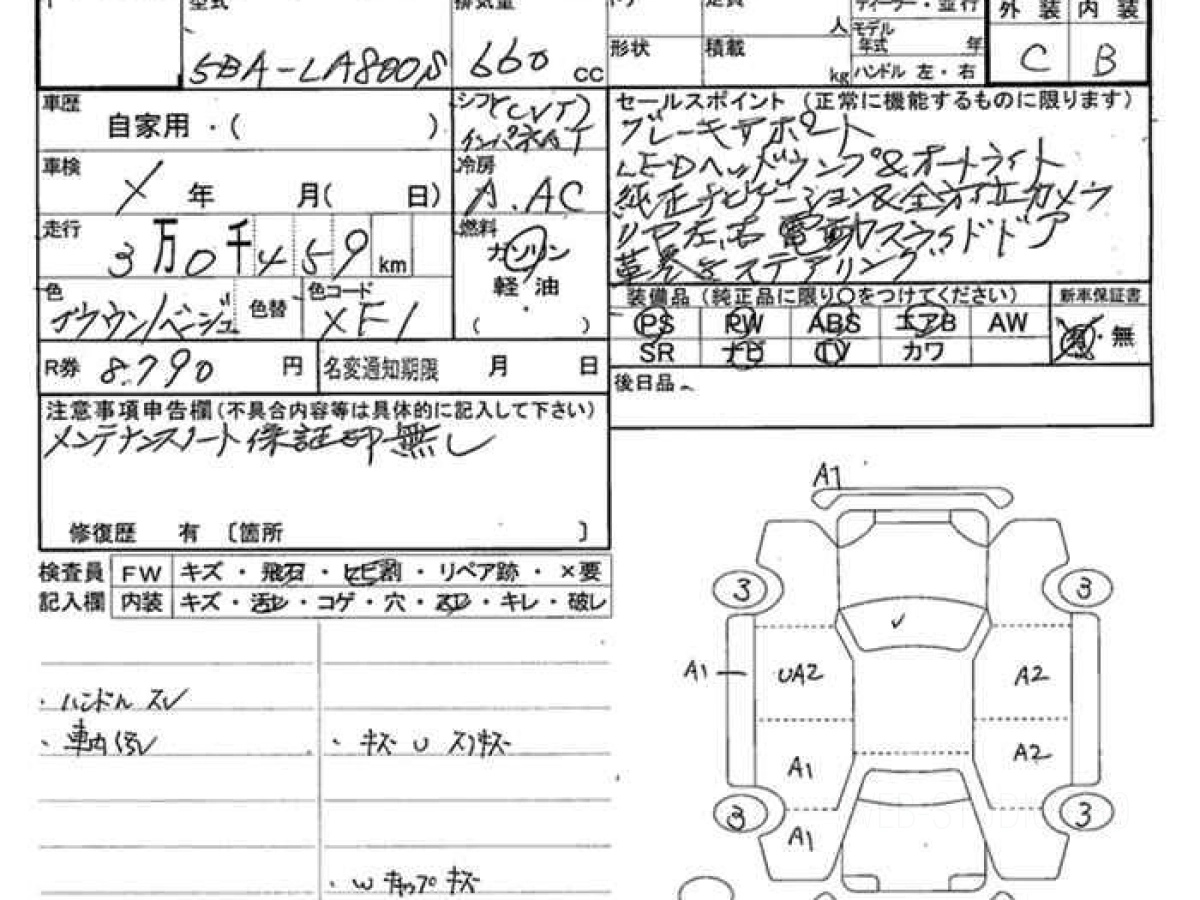 型式
排気量
定員
ディーラー・並行
外装 内装
5BA-LA800S
660 cc
人
形状
積載
kg
モデル年式 年
ハンドル 左・右
C B
車歴
自家用・( )
シフト(CVT)
インパネAT
セールスポイント (正常に機能するものに限ります)
ブレーキサポート
LEDヘッドランプ&オートライト
純正ナビゲーション&全方位カメラ
リヤ左右電動スライドドア
革巻きステアリング
車検
X 年 月( 日)
冷房
A.AC
走行
3万0千459km
燃料
ガソリン
軽油
( )
色
ブラウン/ベージュ
色替
色コード
XF1
装備品 (純正品に限り○をつけてください)
新車保証書
PS PW ABS エアB AW
SR ナビ TV カワ
有・無
R券 8.790 円
名変通知期限 月 日
後日品
注意事項申告欄(不具合内容等は具体的に記入して下さい)
メンテナンスノート保証印無し
修復歴 有 〔箇所 〕
検査員
記入欄
FW キズ・飛石・ヒビ割・リペア跡・×要
内装 キズ・汚レ・コゲ・穴・スレ・キレ・破レ
・ハンドル スレ
・車内汚レ
・キズ U スリキズ
・W キャップ キズ
A1
3
3
A1
UA2
A2
A1
A2
3
3
A1